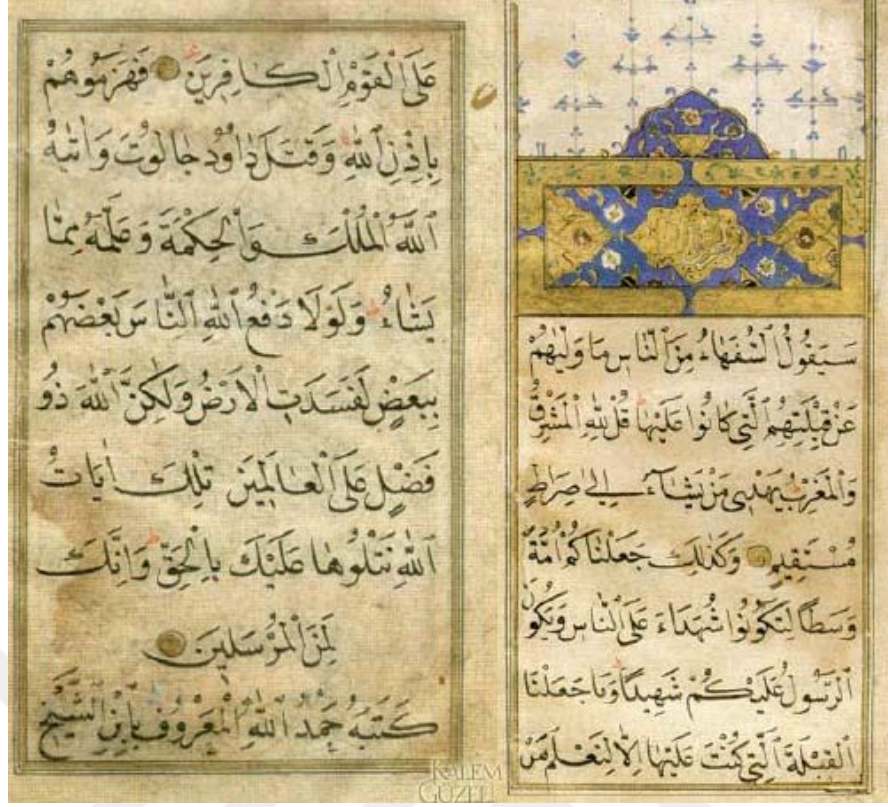 سَيَقُولُ ٱلسُّفَهَاءُ مِنَ ٱلنَّاسِ مَا وَلّٰيهُمْ
عَنْ قِبْلَتِهِمُ ٱلَّتِي كَانُوا عَلَيْهَا قُلْ لِلّٰهِ ٱلْمَشْرِقُ
وَٱلْمَغْرِبُ يَهْدِي مَنْ يَشَاءُ إِلٰى صِرَاطٍ
مُسْتَقِيمٍ وَكَذٰلِكَ جَعَلْنَاكُمْ أُمَّةً
وَسَطًا لِتَكُونُوا شُهَدَاءَ عَلَى ٱلنَّاسِ وَيَكُونَ
ٱلرَّسُولُ عَلَيْكُمْ شَهِيدًا وَمَا جَعَلْنَا
ٱلْقِبْلَةَ ٱلَّتِي كُنْتَ عَلَيْهَا إِلَّا لِنَعْلَمَ مَنْ
عَلَى ٱلْقَوْمِ ٱلْكَافِرِينَ فَهَزَمُوهُمْ
بِإِذْنِ ٱللّٰهِ وَقَتَلَ دَاوُدُ جَالُوتَ وَاٰتٰيهُ
ٱللّٰهُ ٱلْمُلْكَ وَٱلْحِكْمَةَ وَعَلَّمَهُ مِمَّا
يَشَاءُ وَلَوْلَا دَفْعُ ٱللّٰهِ ٱلنَّاسَ بَعْضَهُمْ
بِبَعْضٍ لَفَسَدَتِ ٱلْاَرْضُ وَلٰكِنَّ ٱللّٰهَ ذُو
فَضْلٍ عَلَى ٱلْعَالَمِينَ تِلْكَ اٰيَاتُ
ٱللّٰهِ نَتْلُوهَا عَلَيْكَ بِالْحَقِّ وَإِنَّكَ
لَمِنَ ٱلْمُرْسَلِينَ
كَتَبَهُ حَمْدُ ٱللّٰهِ ٱلْمَعْرُوفُ بِابْنِ ٱلشَّيْخِ
KALEM
GÜZELİ